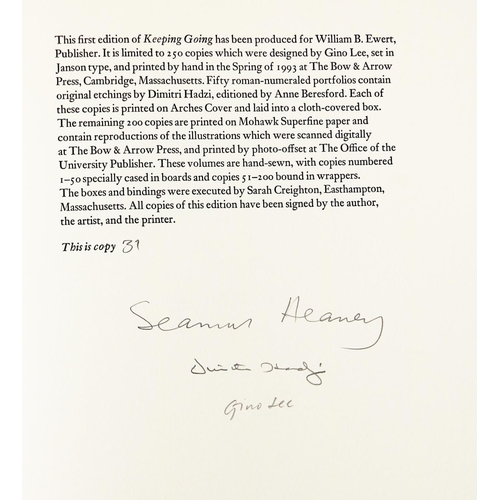 This first edition of Keeping Going has been produced for William B. Ewert,
Publisher. It is limited to 250 copies which were designed by Gino Lee, set in
Janson type, and printed by hand in the Spring of 1993 at The Bow & Arrow
Press, Cambridge, Massachusetts. Fifty roman-numeraled portfolios contain
original etchings by Dimitri Hadzi, editioned by Anne Beresford. Each of
these copies is printed on Arches Cover and laid into a cloth-covered box.
The remaining 200 copies are printed on Mohawk Superfine paper and
contain reproductions of the illustrations which were scanned digitally
at The Bow & Arrow Press, and printed by photo-offset at The Office of the
University Publisher. These volumes are hand-sewn, with copies numbered
1–50 specially cased in boards and copies 51–200 bound in wrappers.
The boxes and bindings were executed by Sarah Creighton, Easthampton,
Massachusetts. All copies of this edition have been signed by the author,
the artist, and the printer.
This is copy 31
Seamus Heaney
Dimitri Hadzi
Gino Lee